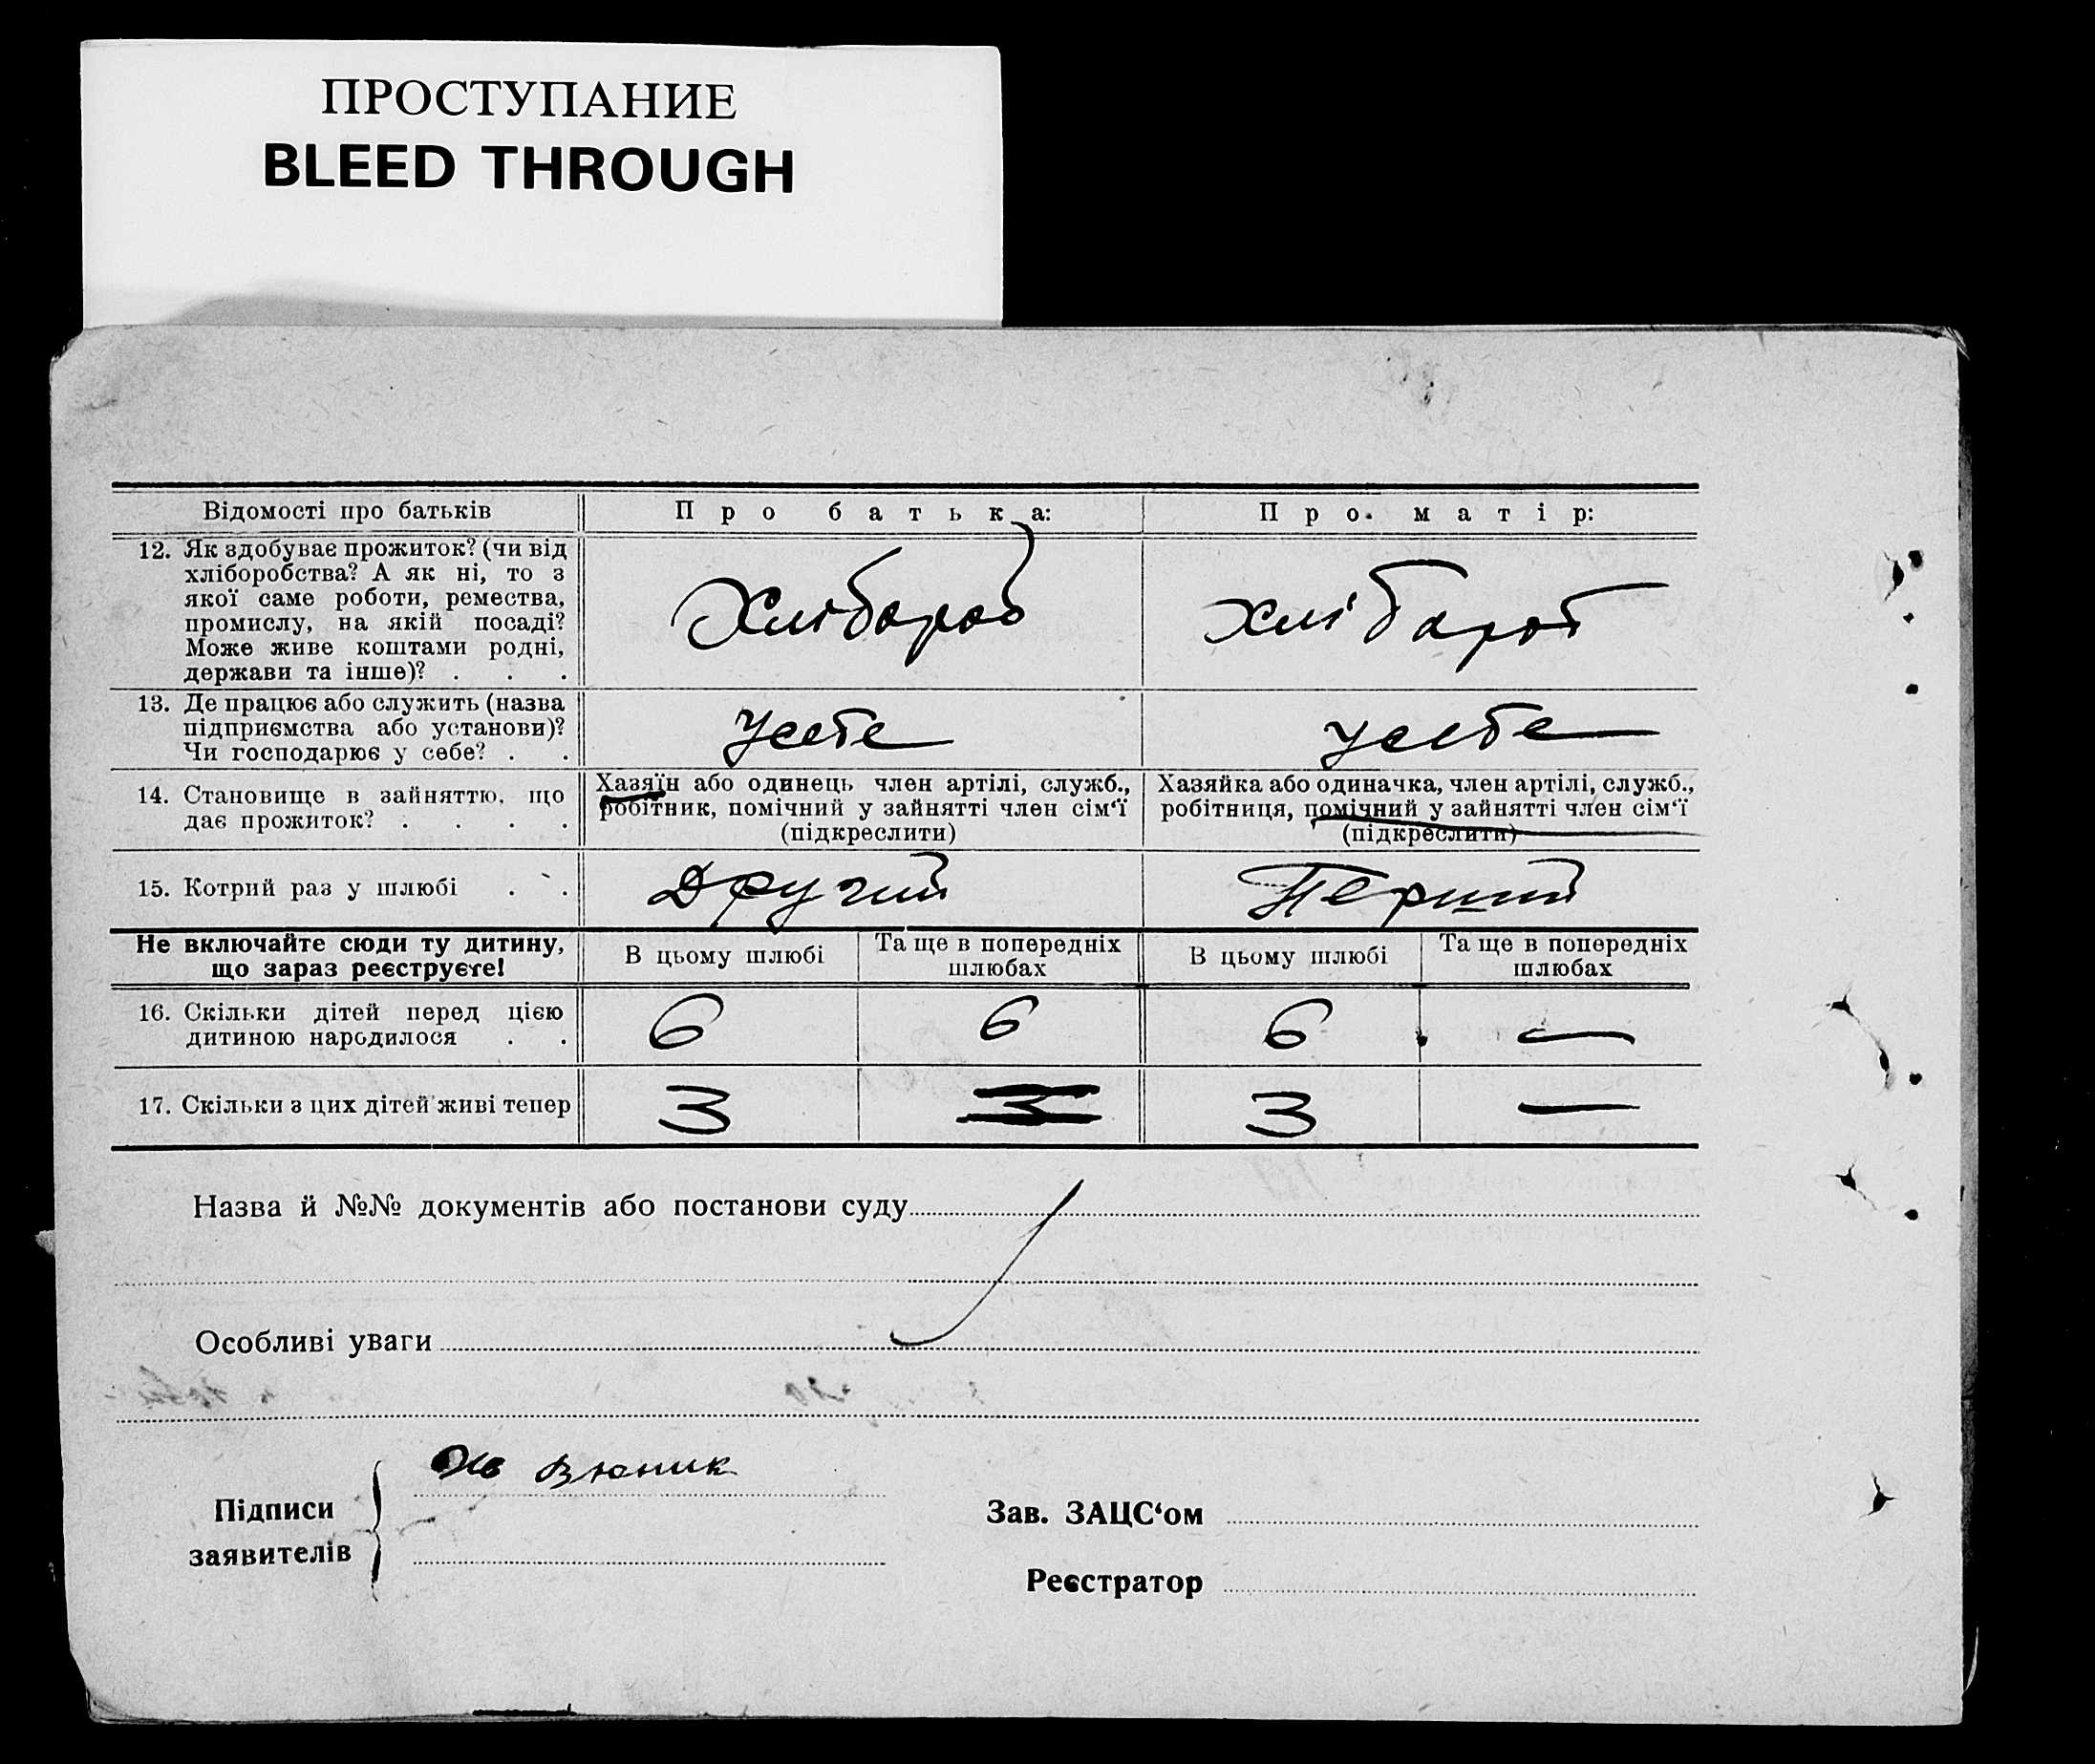 ПРОСТУПАНИЕ
BLEED THROUGH
Відомості про батьків
Про батька:
Про матір:
12. Як здобуває прожиток? (чи від
хліборобства? А як ні, то з
якої саме роботи, ремества,
промислу, на якій посаді?
Може живе коштами родні,
держави та інше)? . . .
Хлібороб
Хлібороб
13. Де працює або служить (назва
підприємства або установи)?
Чи господарює у себе? . .
У себе
у себе
14. Становище в зайняттю, що
дає прожиток? . . . .
Хазяїн або одинець член артілі, служб.,
робітник, помічний у зайнятті член сім‘ї
(підкреслити)
Хазяйка або одиначка, член артілі, служб.,
робітниця, помічний у зайнятті член сім‘ї
(підкреслити)
15. Котрий раз у шлюбі . .
Другий
Перший
Не включайте сюди ту дитину,
що зараз реєструєте!
В цьому шлюбі
Та ще в попередніх
шлюбах
В цьому шлюбі
Та ще в попередніх
шлюбах
16. Скільки дітей перед цією
дитиною народилося . .
6
6
6
—
17. Скільки з цих дітей живі тепер
3
3
3
—
Назва й №№ документів або постанови суду
Особливі уваги
Підписи
заявителів
Зав. ЗАЦС‘ом
Реєстратор